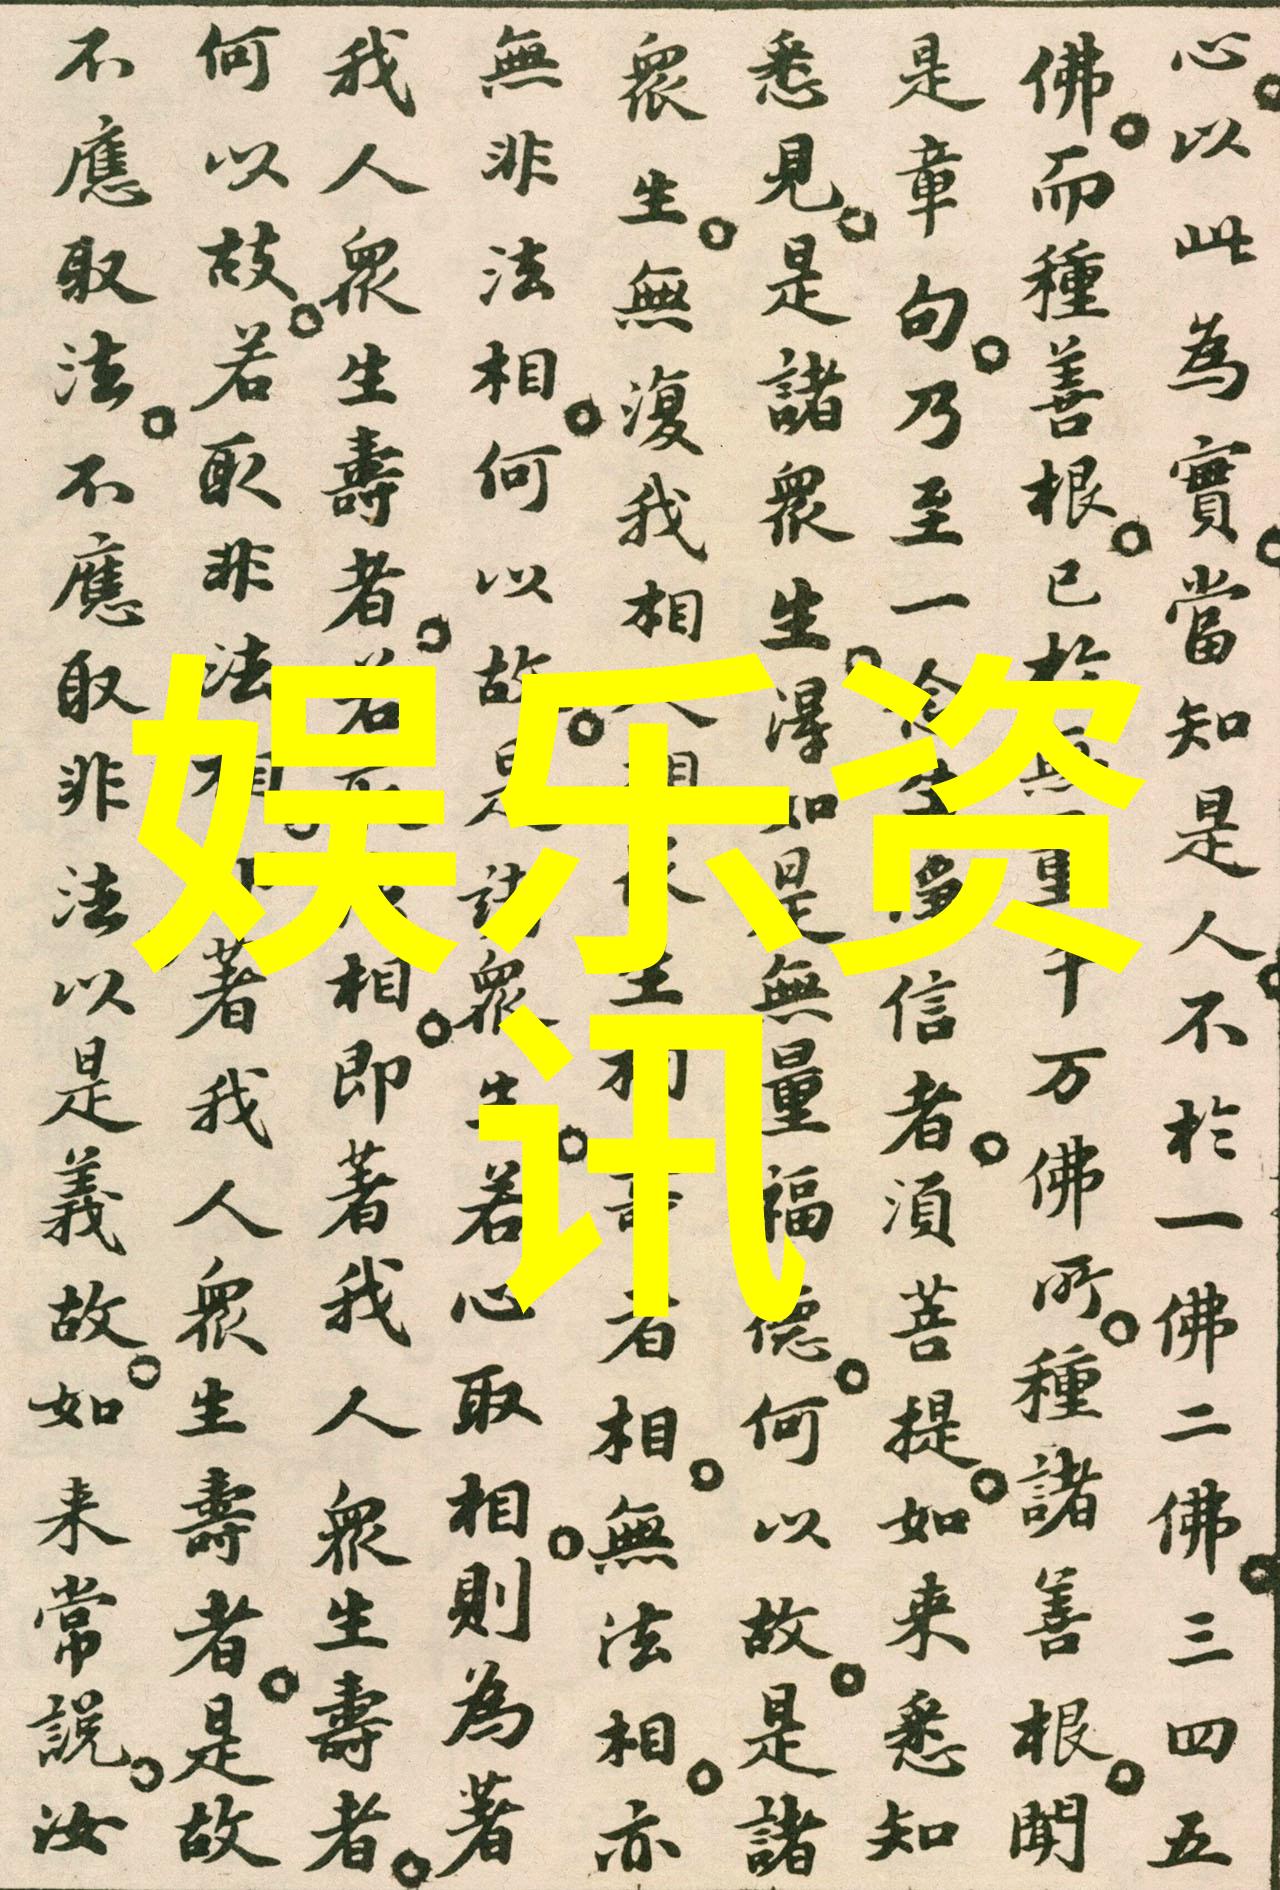 心以此為實當知是人不於一佛二佛三四五
佛而種善根已於無量千万佛所種諸善根聞
是章句乃至一念生淨信者湏菩提如来悉知
悉見是諸衆生得如是無量福德何以故是諸
衆生無復我相人相衆生相壽者相無法相亦
無非法相何以故是諸衆生若心取相則為著
我人衆生壽者若取法相即著我人衆生壽者
何以故若取非法相即著我人衆生壽者是故
不應取法不應取非法以是義故如来常説汝
娱乐资
讯